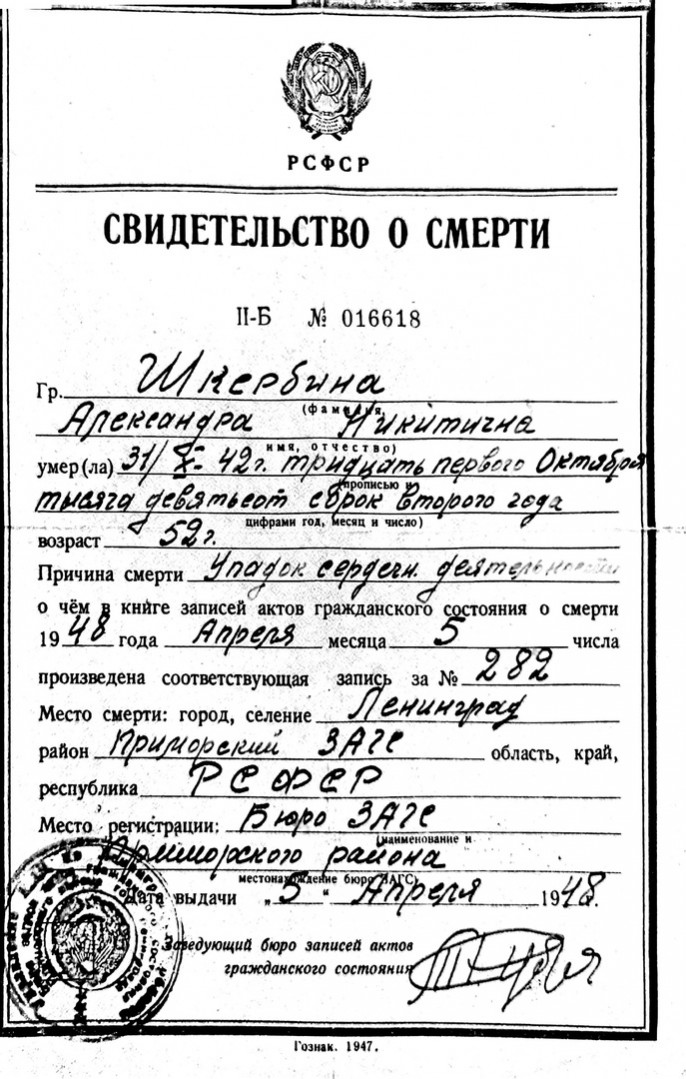 РСФСР
СВИДЕТЕЛЬСТВО О СМЕРТИ
II-Б № 016618
Гр. Шкербина
(фамилия,
Александра Никитична
имя, отчество)
умер(ла) 31/X- 42г. тридцать первого Октября
(прописью и
тысяча девятьсот сорок второго года
цифрами год, месяц и число)
возраст 52г.
Причина смерти Упадок сердечн. деятельности
о чём в книге записей актов гражданского состояния о смерти
1948 года Апреля месяца 5 числа
произведена соответствующая запись за № 282
Место смерти: город, селение Ленинград
район Приморский ЗАГС область, край,
республика РСФСР
Место регистрации: Бюро ЗАГС
(наименование и
Приморского района
местонахождение бюро ЗАГС)
Дата выдачи „5" Апреля 1948.
Заведующий бюро записей актов
гражданского состояния
Гознак. 1947.